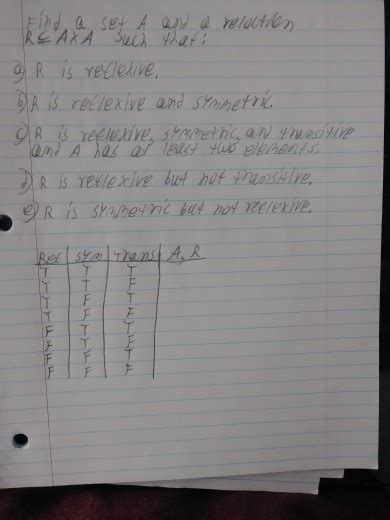 Find a set A and a relation
R ⊆ A×A such that:
a) R is reflexive.
b) R is reflexive and symmetric.
c) R is reflexive, symmetric, and transitive
and A has at least two elements.
d) R is reflexive but not transitive.
e) R is symmetric but not reflexive.
Ref | sym | trans | A, R
T | T | T
T | T | F
T | F | T
T | F | F
F | T | T
F | T | F
F | F | T
F | F | F